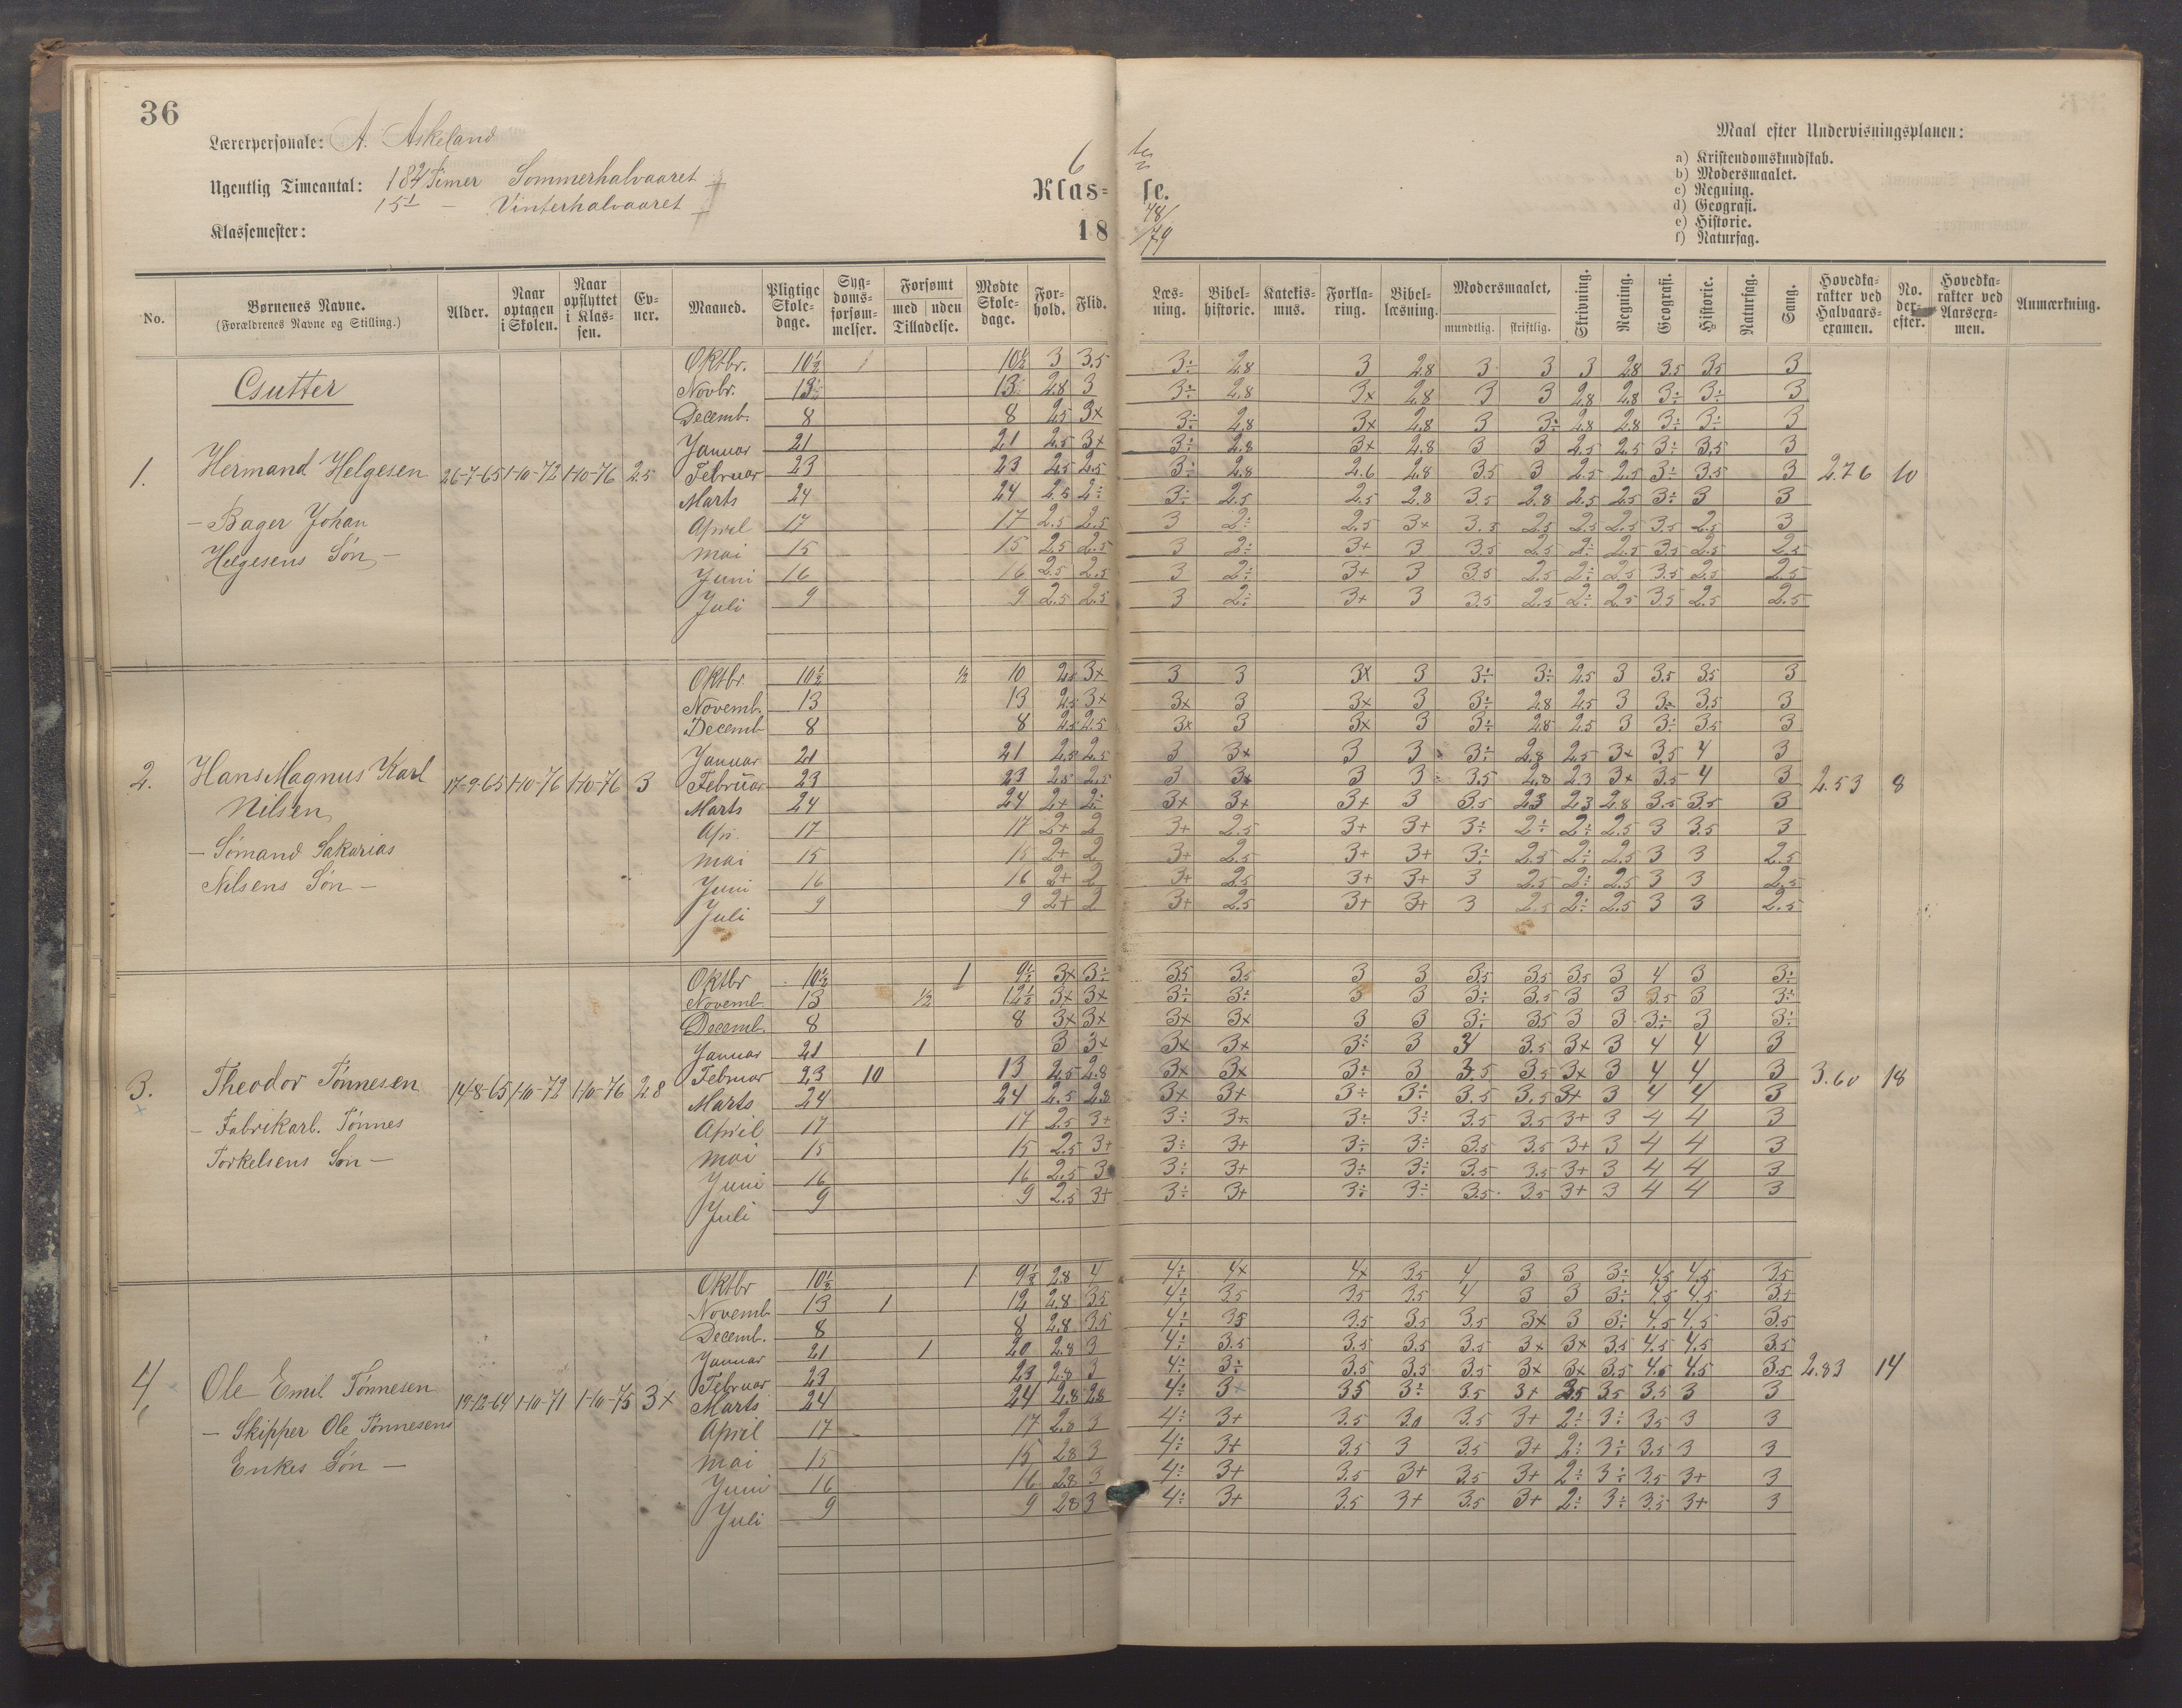 36
Lærerpersonale: A. Askeland
Ugentlig Timeantal: 18¾ Timer Sommerhalvaaret
15½ — Vinterhalvaaret
Klassemester:
6te Klasse.
1878/79
Maal efter Undervisningsplanen:
a) Kristendomskundskab.
b) Modersmaalet.
c) Regning.
d) Geografi.
e) Historie.
f) Naturfag.
No. Børnenes Navne. (Forældrenes Navne og Stilling.) Alder. Naar optagen i Skolen. Naar opflyttet i Klassen. Evner. Maaned. Pligtige Skoledage. Sygdomsforsømmelser. Forsømt med uden Tilladelse. Mødte Skoledage. Forhold. Flid. Læsning. Bibelhistorie. Katekismus. Forklaring. Bibellæsning. Modersmaalet, mundtlig. skriftlig. Skrivning. Regning. Geografi. Historie. Naturfag. Sang. Hovedkarakter ved Halvaarsexamen. No. derefter. Hovedkarakter ved Aarsexamen. Anmærkning.
Gutter
1. Hermand Helgesen 26-7-65 1-10-72 1-10-76 2.5 2.76 10
— Bager Johan
Helgesens Søn —
Oktbr. 10½ 1 10½ 3 3.5 3÷ 2.8 3 2.8 3 3 3 2.8 3.5 3.5 3
Novbr. 13 13 2.8 3 3÷ 2.8 3x 2.8 3 3 2.8 2.8 3÷ 3÷ 3
Decemb. 8 8 2.5 3x 3÷ 2.8 3x 2.8 3 3÷ 2.8 2.8 3÷ 3÷ 3
Januar 21 21 2.5 3x 3÷ 2.8 3x 2.8 3 3 2.5 2.5 3÷ 3.5 3
Februar 23 23 2.5 2.5 3÷ 2.8 2.6 2.8 3.5 3 2.5 2.5 3÷ 3.5 3
Marts 24 24 2.5 2÷ 3÷ 2.5 2.5 2.8 3.5 2.8 2.5 2.5 3÷ 3 3
April 17 17 2.5 2.5 3 2÷ 2.5 3x 3.5 2.5 2.5 2.5 3.5 2.5 3
Mai 15 15 2.5 2.5 3 2÷ 3+ 3 3.5 2.5 2÷ 2.5 3.5 2.5 2.5
Juni 16 16 2.5 2.5 3 2÷ 3+ 3 3.5 2.5 2÷ 2.5 3.5 2.5 2.5
Juli 9 9 2.5 2.5 3 2÷ 3+ 3 3.5 2.5 2÷ 2.5 3.5 2.5 2.5
2. Hans Magnus Karl 17-9-65 1-10-76 1-10-76 3 2.53 8
Nilsen
— Sømand Sakarias
Nilsens Søn —
Oktbr 10½ ½ 10 2.5 3x 3 3 3x 3 3÷ 3÷ 2.5 3 3.5 3.5 3
Novemb. 13 13 2.5 3x 3x 3 3x 3 3÷ 2.8 2.5 3 3x 3.5 3
Decemb 8 8 2.5 2.5 3x 3 3x 3 3÷ 2.8 2.5 3 3÷ 3.5 3
Januar 21 21 2.5 2.5 3 3x 3 3 3÷ 2.8 2.5 3x 3.5 4 3
Februar 23 23 2.5 2.5 3 3x 3 3 3.5 2.8 2.3 3x 3.5 4 3
Marts 24 24 2+ 2÷ 3+ 3+ 3+ 3 3.5 2.3 2.3 2.8 3.5 3.5 3
Apr. 17 17 2+ 2 3+ 2.5 3+ 3+ 3÷ 2÷ 2÷ 2.5 3 3.5 3
Mai 15 15 2+ 2 3+ 2.5 3+ 3+ 3÷ 2.5 2÷ 2.5 3 3 2.5
Juni 16 16 2+ 2 3+ 2.5 3+ 3+ 3 2.5 2÷ 2.5 3 3 2.5
Juli 9 9 2+ 2 3+ 2.5 3+ 3+ 3 2.5 2÷ 2.5 3 3 2.5
3. Theodor Tønnesen 14-8-65 1-10-72 1-10-76 2.8 3.60 18
— Fabrikarb. Tønnes
Torkelsens Søn —
Oktbr 10½ 1 9½ 3x 3÷ 3.5 3.5 3 3 3.5 3.5 3.5 3 4 3 3÷
Novemb. 13 ½ 12½ 3x 3x 3÷ 3÷ 3 3 3÷ 3.5 3 3 3.5 3 3÷
Decemb. 8 8 3x 3x 3x 3x 3 3 3÷ 3.5 3 3 3÷ 3 3÷
Januar 21 1 3 3x 3x 3x 3÷ 3 3.5 3x 3 4 4 3
Februar 23 10 13 2.5 2.8 3x 3x 3÷ 3 3.5 3.5 3x 3 4 4 3
Marts 24 24 2.5 2.8 3x 3+ 3÷ 3÷ 3.5 3.5 3+ 3 4 4 3
April 17 17 2.5 3+ 3÷ 3+ 3÷ 3÷ 3.5 3.5 3+ 3 4 4 3
Mai 15 15 2.5 3+ 3÷ 3+ 3÷ 3÷ 3.5 3.5 3+ 3 4 4 3
Juni 16 16 2.5 3 3÷ 3+ 3÷ 3÷ 3.5 3.5 3+ 3 4 4 3
Juli 9 9 2.5 3+ 3÷ 3+ 3÷ 3÷ 3.5 3.5 3+ 3 4 4 3
4. Ole Emil Tønnesen 19-12-64 1-10-71 1-10-75 3x 2.83 14
— Skipper Ole Tønnesens
Enkes Søn —
Oktbr 10½ 1 9½ 2.8 4 4÷ 4x 4x 3.5 4 3 3 3÷ 4.5 4.5 3.5
Novemb 13 1 12 2.8 3.5 4÷ 3.5 3.5 3.5 4 3 3 3÷ 4.5 4.5 3.5
Decemb. 8 8 2.8 3.5 4÷ 3.5 3.5 3.5 3.5 3x 3 3÷ 4.5 4.5 3.5
Januar 21 1 20 2.8 3 4÷ 3.5 3.5 3.5 3.5 3x 3x 3.5 4.5 4.5 3.5
Februar 23 23 2.8 3 4÷ 3÷ 3.5 3.5 3.5 3x 3x 3.5 4.5 4.5 3.5
Marts 24 24 2.8 2.8 4÷ 3+ 3.5 3÷ 3.5 3+ 3.5 3.5 3.5 3 3
April 17 17 2.8 3 4÷ 3+ 3.5 3.0 3.5 3+ 2÷ 3÷ 3.5 3 3
Mai 15 15 2.8 3 4÷ 3+ 3.5 3 3.5 3+ 2÷ 3÷ 3.5 3 3
Juni 16 16 2.8 3 4÷ 3+ 3.5 3+ 3.5 3+ 2÷ 3÷ 3.5 3+ 3
Juli 9 9 2.8 3 4÷ 3+ 3.5 3+ 3.5 3+ 2÷ 3÷ 3.5 3+ 3